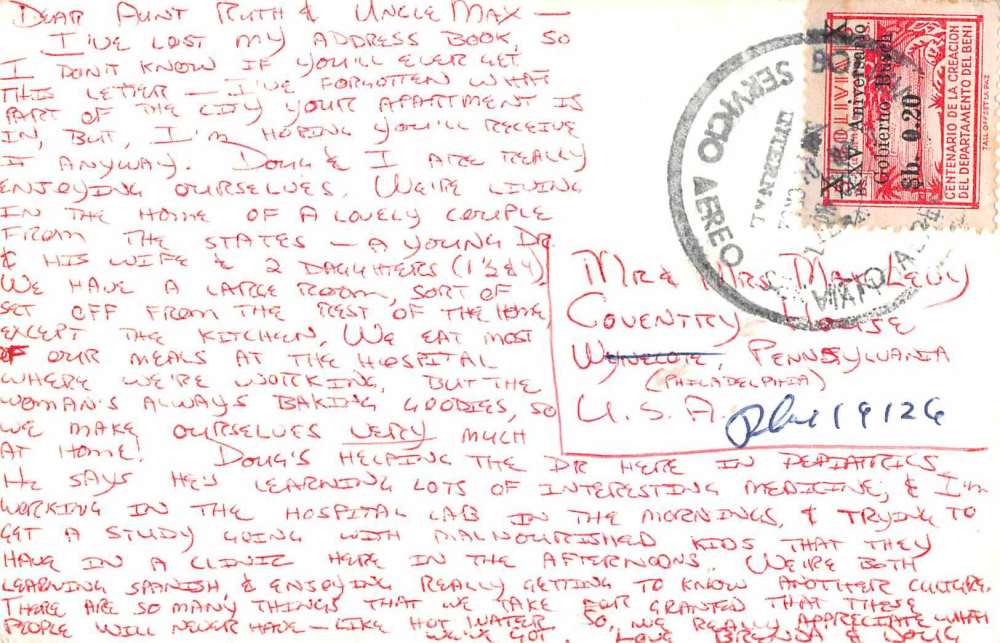 DEAR AUNT RUTH & UNCLE MAX —
I'VE LOST MY ADDRESS BOOK, SO
I DON'T KNOW IF YOU'LL EVER GET
THIS LETTER — I'VE FORGOTTEN WHAT
PART OF THE CITY YOUR APARTMENT IS
IN, BUT, I'M HOPING YOU'LL RECEIVE
IT ANYWAY. DOUG & I ARE REALLY
ENJOYING OURSELVES. WE'RE LIVING
IN THE HOME OF A LOVELY COUPLE
FROM THE STATES — A YOUNG DR.
& HIS WIFE & 2 DAUGHTERS (1½ & 4).
WE HAVE A LARGE ROOM, SORT OF
SET OFF FROM THE REST OF THE HOME,
EXCEPT THE KITCHEN, WE EAT MOST
OF OUR MEALS AT THE HOSPITAL
WHERE WE'RE WORKING, BUT THE
WOMAN'S ALWAYS BAKING GOODIES, SO
WE MAKE OURSELVES VERY MUCH
AT HOME! DOUG'S HELPING THE DR HERE IN PEDIATRICS.
HE SAYS HE'S LEARNING LOTS OF INTERESTING MEDICINE, & I'M
WORKING IN THE HOSPITAL LAB IN THE MORNINGS, & TRYING TO
GET A STUDY GOING WITH MALNOURISHED KIDS THAT THEY
HAVE IN A CLINIC HERE IN THE AFTERNOONS. WE'RE BOTH
LEARNING SPANISH, & ENJOYING REALLY GETTING TO KNOW ANOTHER CULTURE.
THERE ARE SO MANY THINGS THAT WE TAKE FOR GRANTED THAT THESE
PEOPLE WILL NEVER HAVE — LIKE HOT WATER SO, WE REALLY APPRECIATE WHAT
WE'VE GOT. LOVE
MR & MRS. MAX LEVY
COVENTRY HOUSE
WYNCOTE, PENNSYLVANIA
(PHILADELPHIA)
U.S.A. Phil 19126
SERVICIO AEREO
BOLIVIA
XXV Aniversario
Gobierno Busch
$b. 0.20
CENTENARIO DE LA CREACION
DEL DEPARTAMENTO DEL BENI
TALL. OFFSET LA PAZ